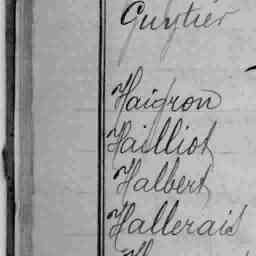 Guytier
Haigron
Hailliot
Halbert
Hallerais